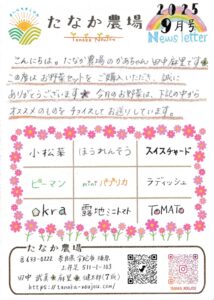 たなか農場
Tanaka Noujou
2025
9月号
Newsletter
こんにちは。たなか農場のかあちゃん 田中麻里です
この度はお野菜セットをご購入いただき、誠に
ありがとうございます 今月のお野菜は、下記の中から
オススメのものをチョイスしてお送りしています。
小松菜 ほうれんそう スイスチャード
ピーマン パプリカ ラディッシュ
Okra 露地ミニトマト TOMATO
たなか農場
上井足 511-1-103
https://tanaka-noujou.com/